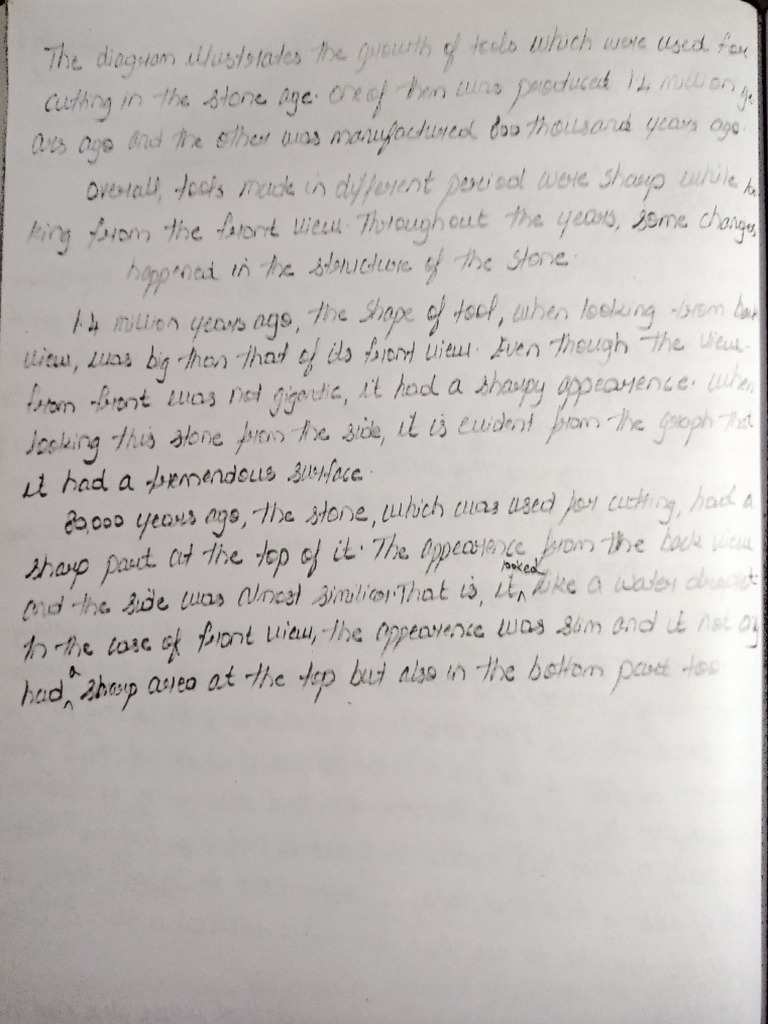 The diagram illustrates the growth of tools which were used for
cutting in the stone age. One of them was produced 1.4 million ye
ars ago and the other was manufactured 800 thousand years ago.
Overall, tools made in different period were sharp while loo
king from the front view. Throughout the years, some changes
happened in the structure of the stone.
1.4 million years ago, the shape of tool, when looking from back
view, was big than that of its front view. Even though the view
from front was not gigantic, it had a sharpy appearence. When
looking this stone from the side, it is evident from the graph that
it had a tremendous surface.
80,000 years ago, the stone, which was used for cutting, had a
sharp part at the top of it. The appearence from the back view
and the side was almost similar. That is, it looked like a water
In the case of front view, the appearence was slim and it not
had a sharp area at the top but also in the bottom part too